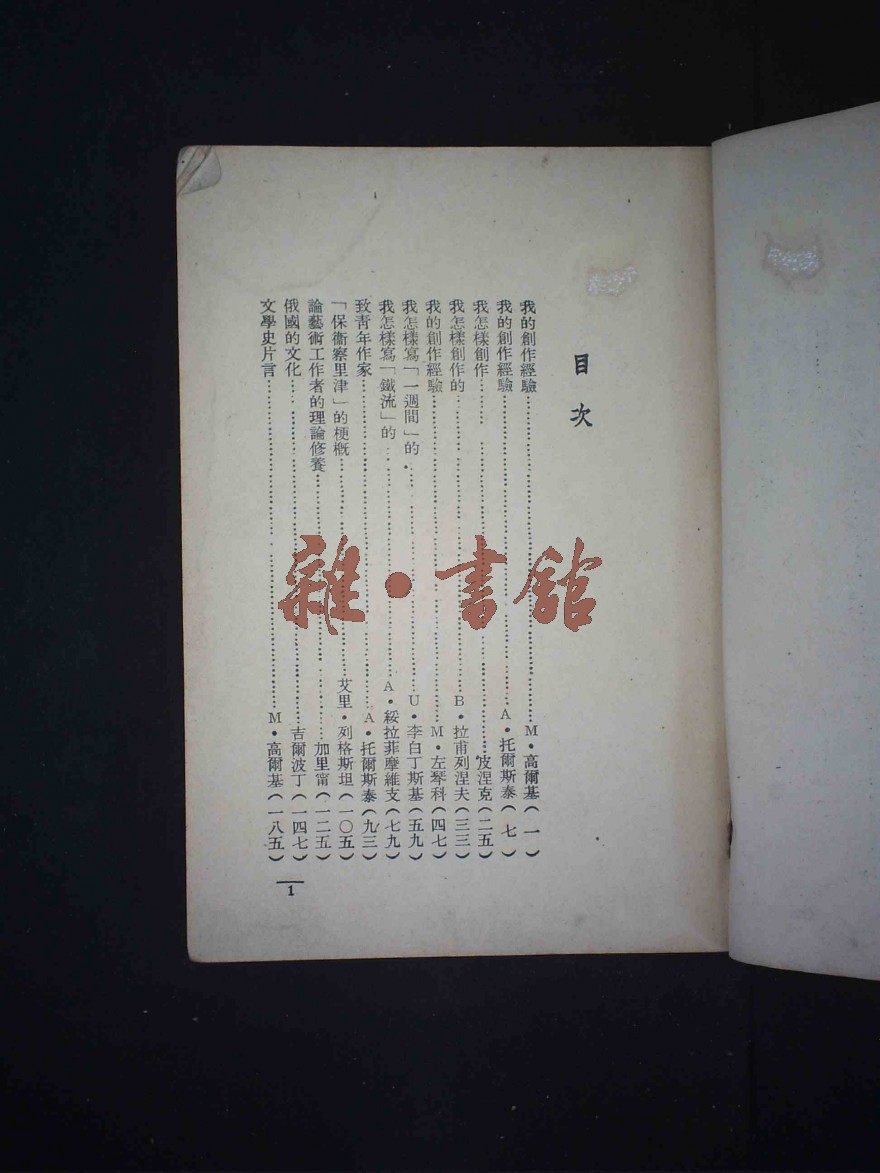 目次
我的創作經驗……M·高爾基(一)
我的創作經驗……A·托爾斯泰(七)
我怎樣創作……皮涅克(二五)
我怎樣創作的……B·拉甫列涅夫(三三)
我的創作經驗……M·左琴科(四七)
我怎樣寫「一週間」的……U·李白丁斯基(五九)
我怎樣寫「鐵流」的……A·綏拉菲摩維支(七九)
致青年作家……A·托爾斯泰(九三)
「保衞察里津」的梗概……艾里·列格斯坦(一〇五)
論藝術工作者的理論修養……加里甯(一二五)
俄國的文化……吉爾波丁(一四七)
文學史片言……M·高爾基(一八五)
1
雜·書館